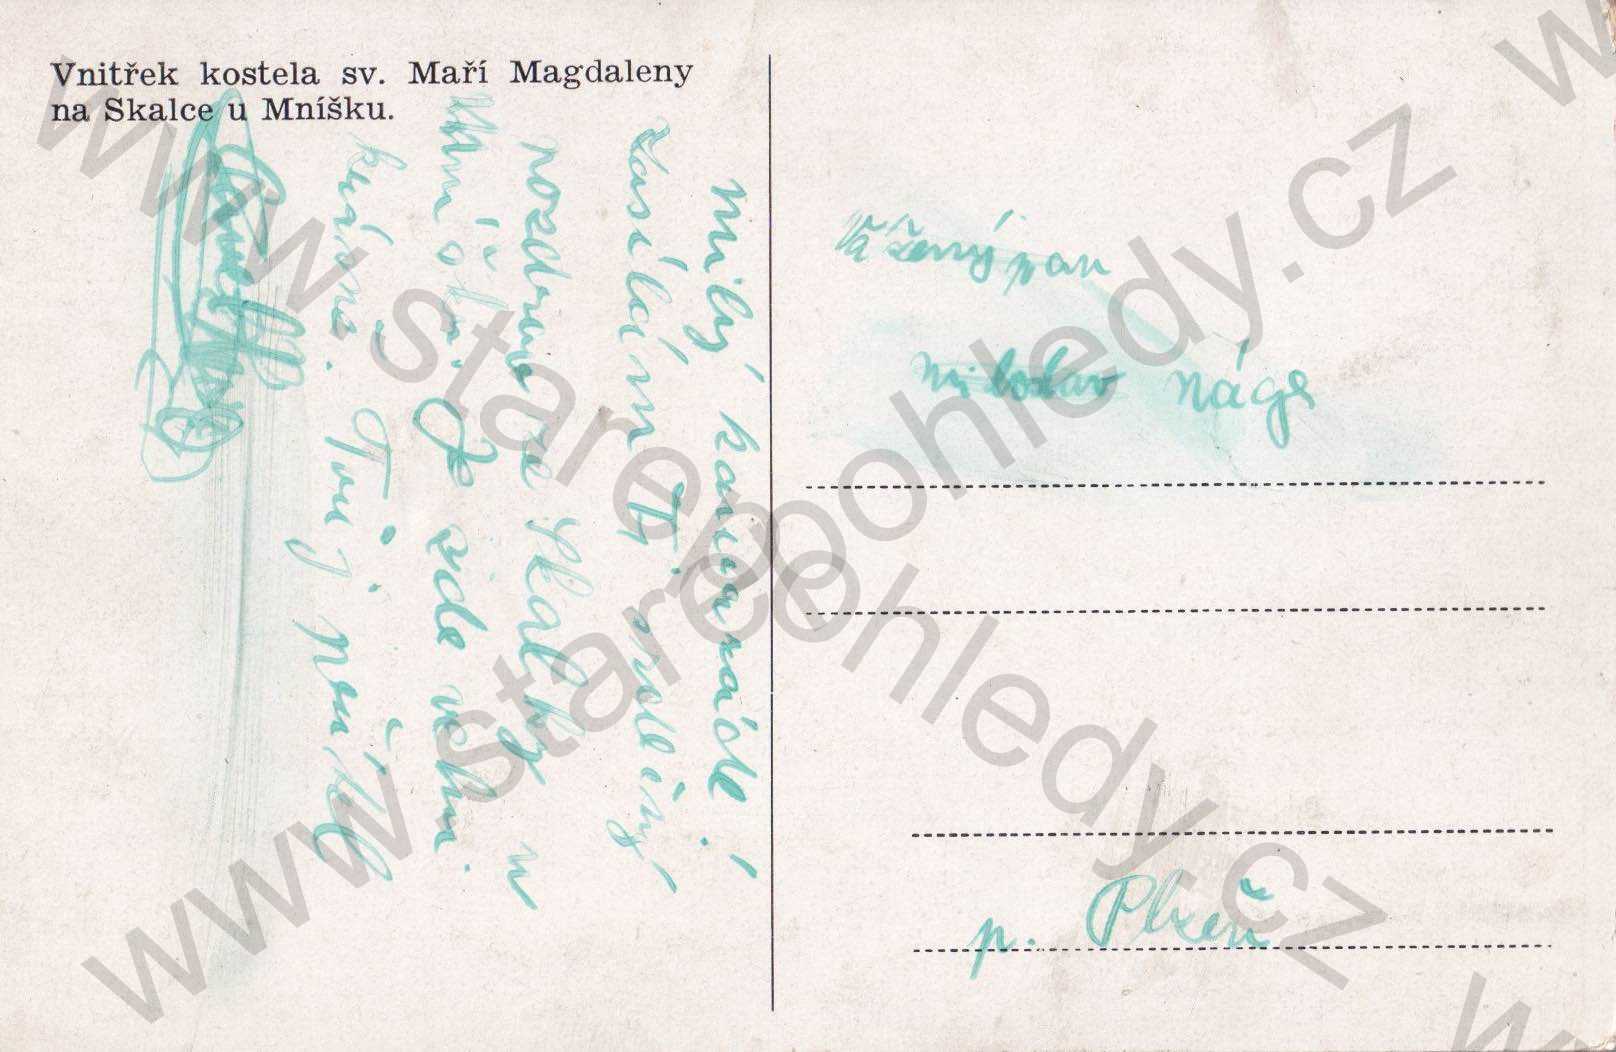 Vnitřek kostela sv. Maří Magdaleny
na Skalce u Mníšku.
Milý kamaráde!
Zasílám Ti srdečný
pozdrav ze Skalky u
Mníšku. Je zde velmi
krásně. Tvůj přítel
Vážený pan
Miloslav
p. Plzeň
www.starepohledy.cz
www.starepohledy.cz